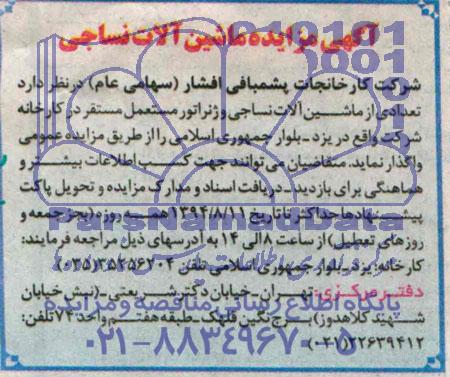 آگهی مزایده ماشین آلات نساجی
شرکت کارخانجات پشمبافی افشار (سهامی عام) در نظر دارد
تعدادی از ماشین آلات نساجی و ژنراتور مستعمل مستقر در کارخانه
شرکت واقع در یزد - بلوار جمهوری اسلامی را از طریق مزایده عمومی
واگذار نماید. متقاضیان می توانند جهت کسب اطلاعات بیشتر و
هماهنگی برای بازدید - دریافت اسناد و مدارک مزایده و تحویل پاکت
پیشنهادها حداکثر تا تاریخ ۱۳۹۴/۸/۱۱ همه روزه (بجز جمعه و
روزهای تعطیل) از ساعت ۸ الی ۱۴ به آدرسهای ذیل مراجعه فرمایند:
کارخانه: یزد - بلوار جمهوری اسلامی تلفن ۳۵۲۵۶۲۰۴ (۰۳۵)
دفتر مرکزی: تهران - خیابان دکتر شریعتی - (نبش خیابان
شهید کلاهدوز) برج نگین قلهک - طبقه هفتم - واحد ۷۴ تلفن:
۲۲۶۳۹۴۱۲ (۰۲۱)
ParsNamadData
پایگاه اطلاع رسانی مناقصه و مزایده
۰۲۱-۸۸۳۴۹۶۷۰-۵